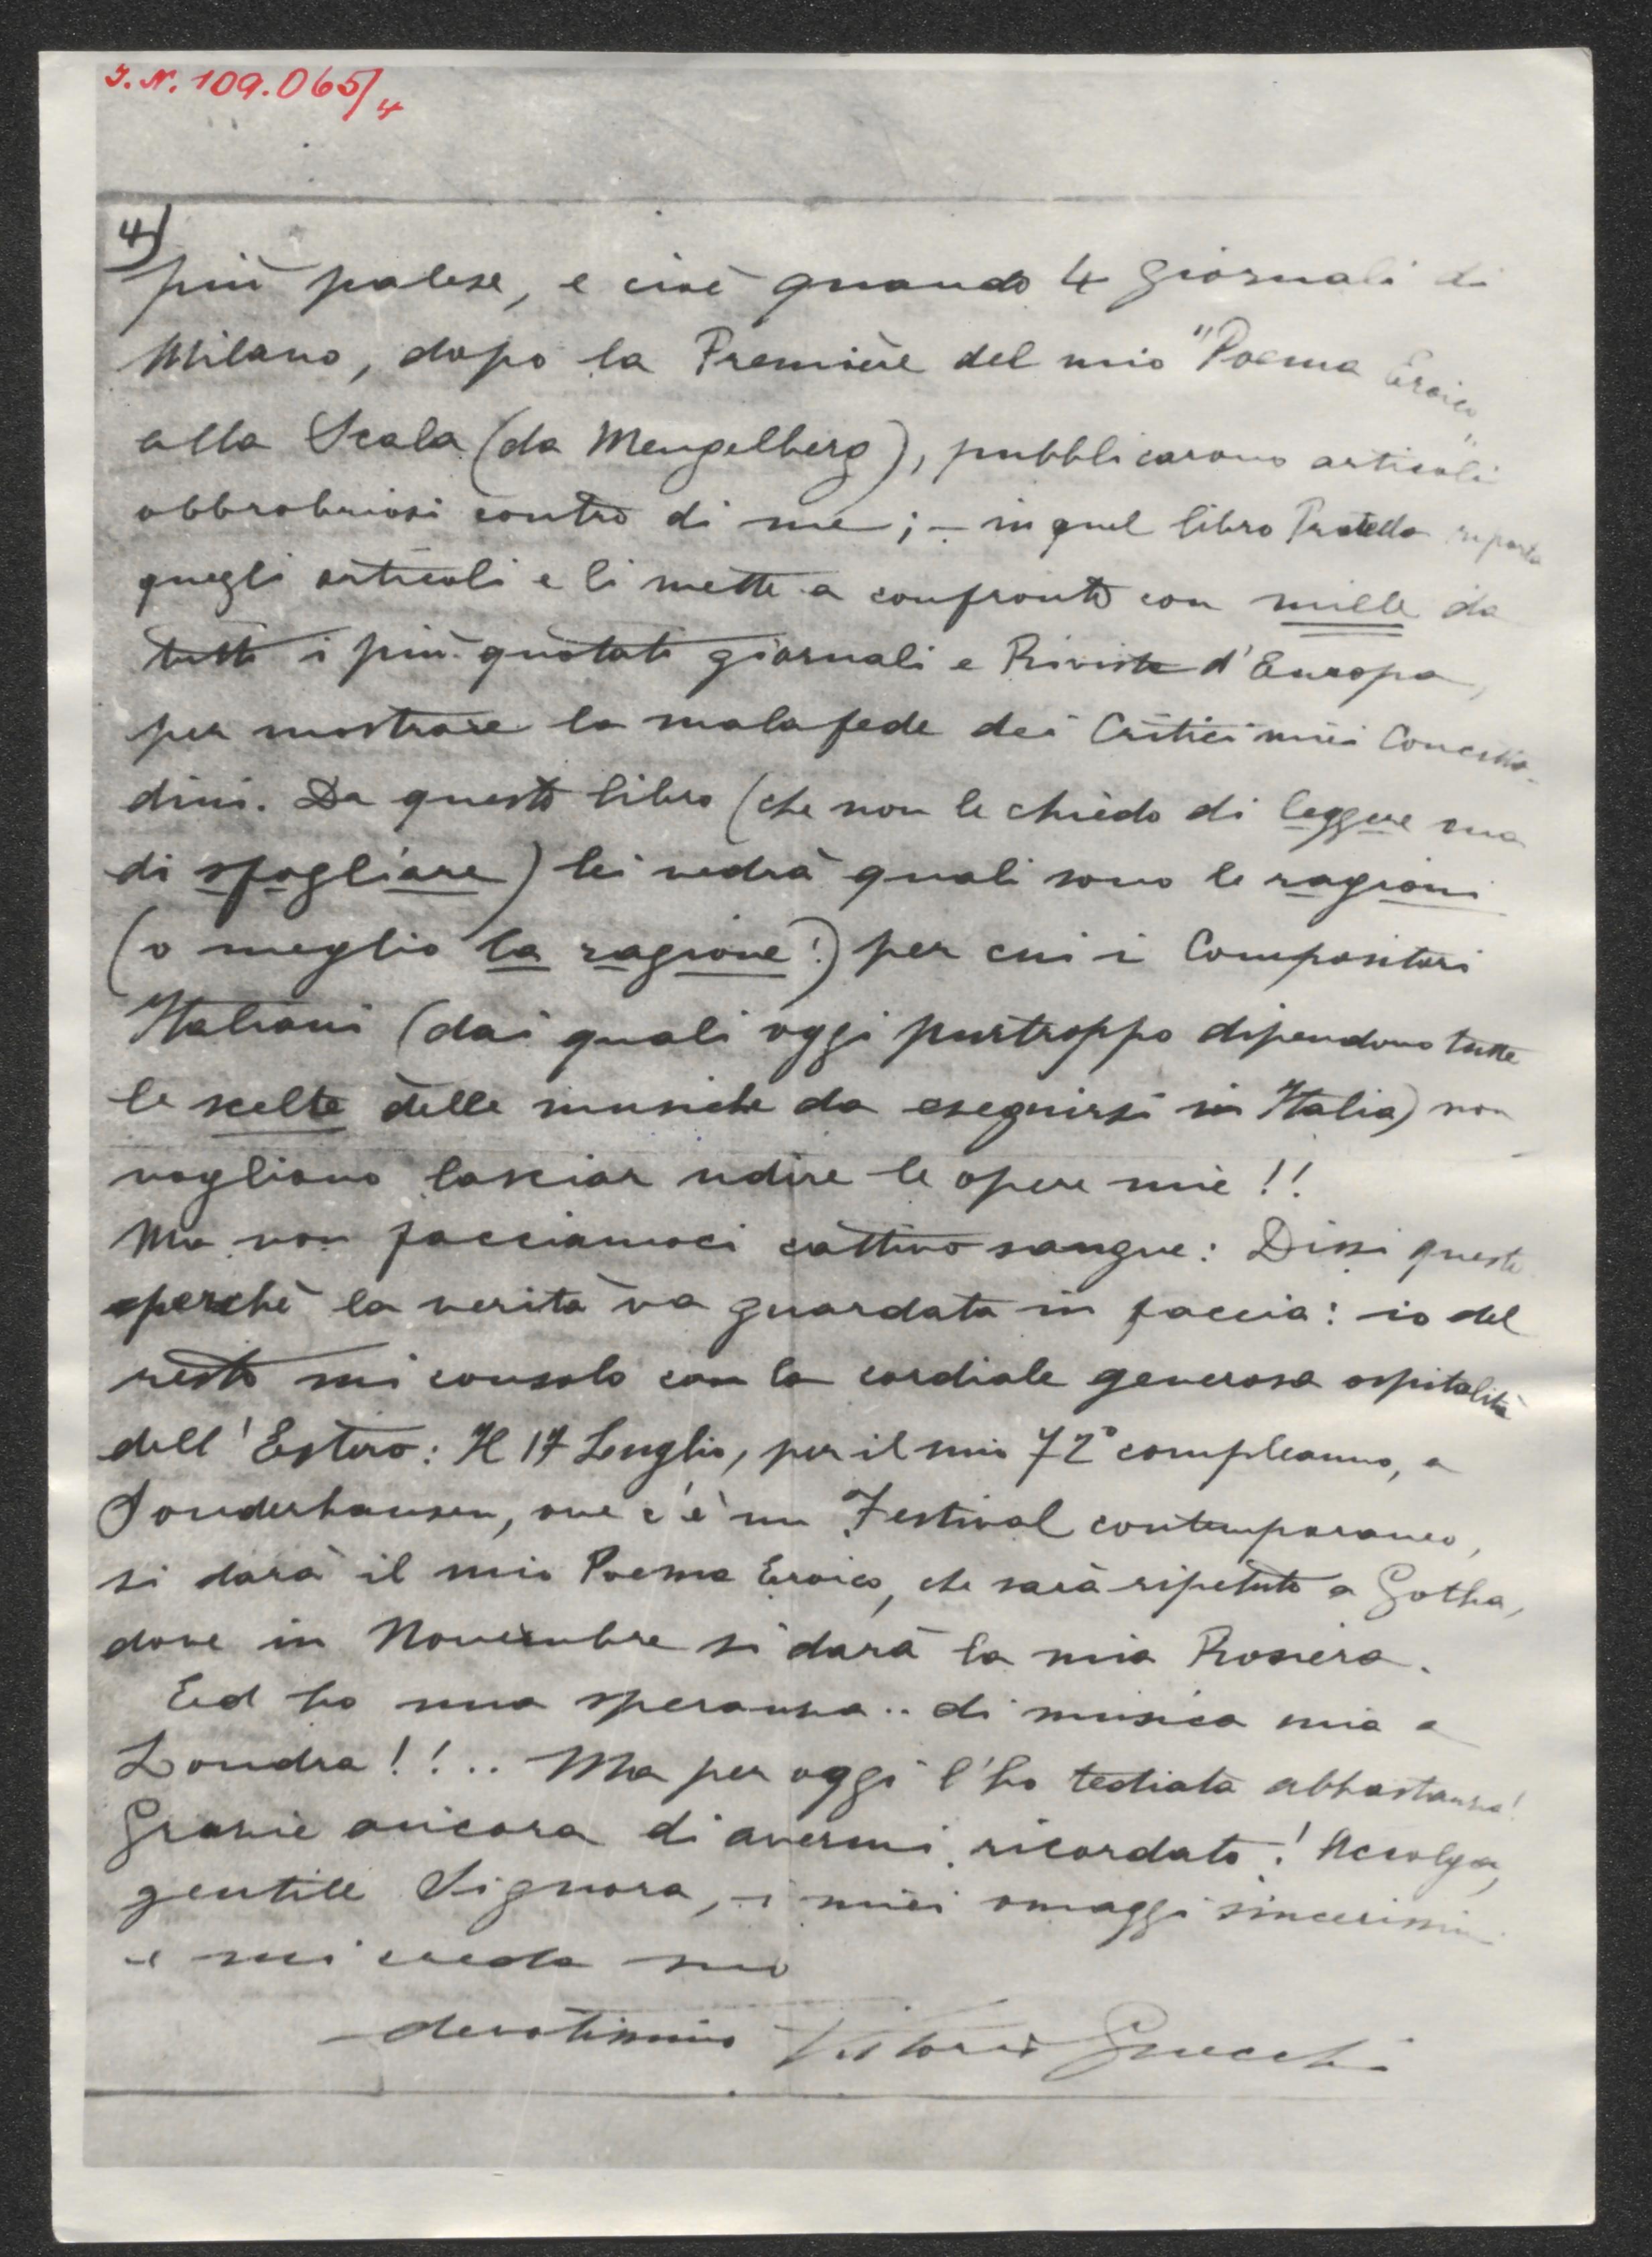 J.N. 109.065/4
4)
più palese, e cioè quando 4 giornali di
Milano, dopo la Première del mio "Poema Eroico"
alla Scala (da Mengelberg), pubblicarono articoli
obbrobriosi contro di me; - in quel libro Pratella riporta
quegli articoli e li mette a confronto con mille da
tutti i più quotati giornali e Riviste d'Europa,
per mostrare la malafede dei Critici miei Concitta-
dini. Da questo libro (che non le chiedo di leggere ma
di sfogliare) lei vedrà quali sono le ragioni
(o meglio la ragione!) per cui i Compositori
Italiani (dai quali oggi purtroppo dipendono tutte
le scelte delle musiche da eseguirsi in Italia) non
vogliono lasciar udire le opere mie!!
Ma non facciamoci cattivo sangue: Dissi questo
perchè la verità va guardata in faccia: io del
resto mi consolo con la cordiale generosa ospitalità
dell'Estero: Il 17 Luglio, per il mio 72° compleanno, a
Sonderhausen, ove c'è un Festival contemporaneo,
si darà il mio Poema Eroico, che sarà ripetuto a Gotha,
dove in Novembre si darà la mia Rosiera.
Ed ho una speranza.. di musica mia a
Londra!!.. Ma per oggi l'ho tediata abbastanza!
Grazie ancora di avermi ricordato! Accolga,
gentile Signora, i miei omaggi sincerissimi
e mi creda suo
devotissimo Vittorio Gnecchi